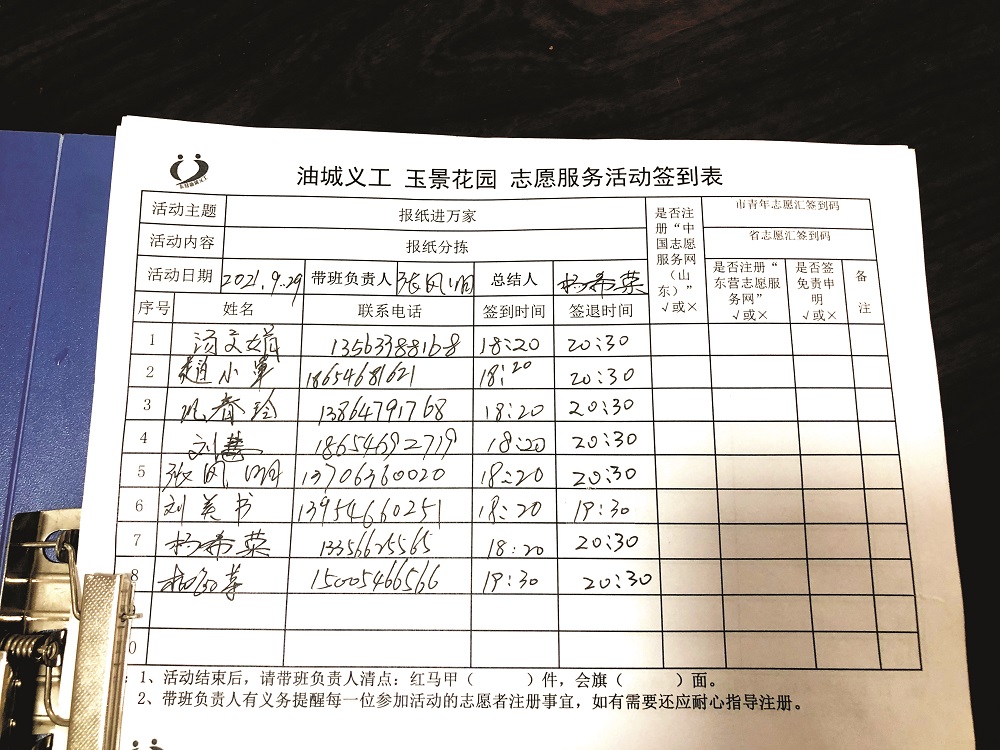 油城义工 玉景花园 志愿服务活动签到表
活动主题 报纸进万家 是否注册“中国志愿服务网（山东）”√或× 市青年志愿汇签到码
活动内容 报纸分拣 省志愿汇签到码
活动日期 2021.9.29 带班负责人 张凤 总结人 杨希荣 是否注册“东营志愿服务网”√或× 是否签免责申明√或× 备注
序号 姓名 联系电话 签到时间 签退时间
1 汤文娟 13563388168 18:20 20:30
2 赵小军 18654681621 18:20 20:30
3 春玲 13864791768 18:20 20:30
4 刘 18654692719 18:20 20:30
5 张凤 13706360020 18:20 20:30
6 刘英书 13954660251 18:20 19:30
7 杨希荣 13356625565 18:20 20:30
8 15005466566 19:30 20:30
0
1、活动结束后，请带班负责人清点：红马甲（ ）件，会旗（ ）面。
2、带班负责人有义务提醒每一位参加活动的志愿者注册事宜，如有需要还应耐心指导注册。